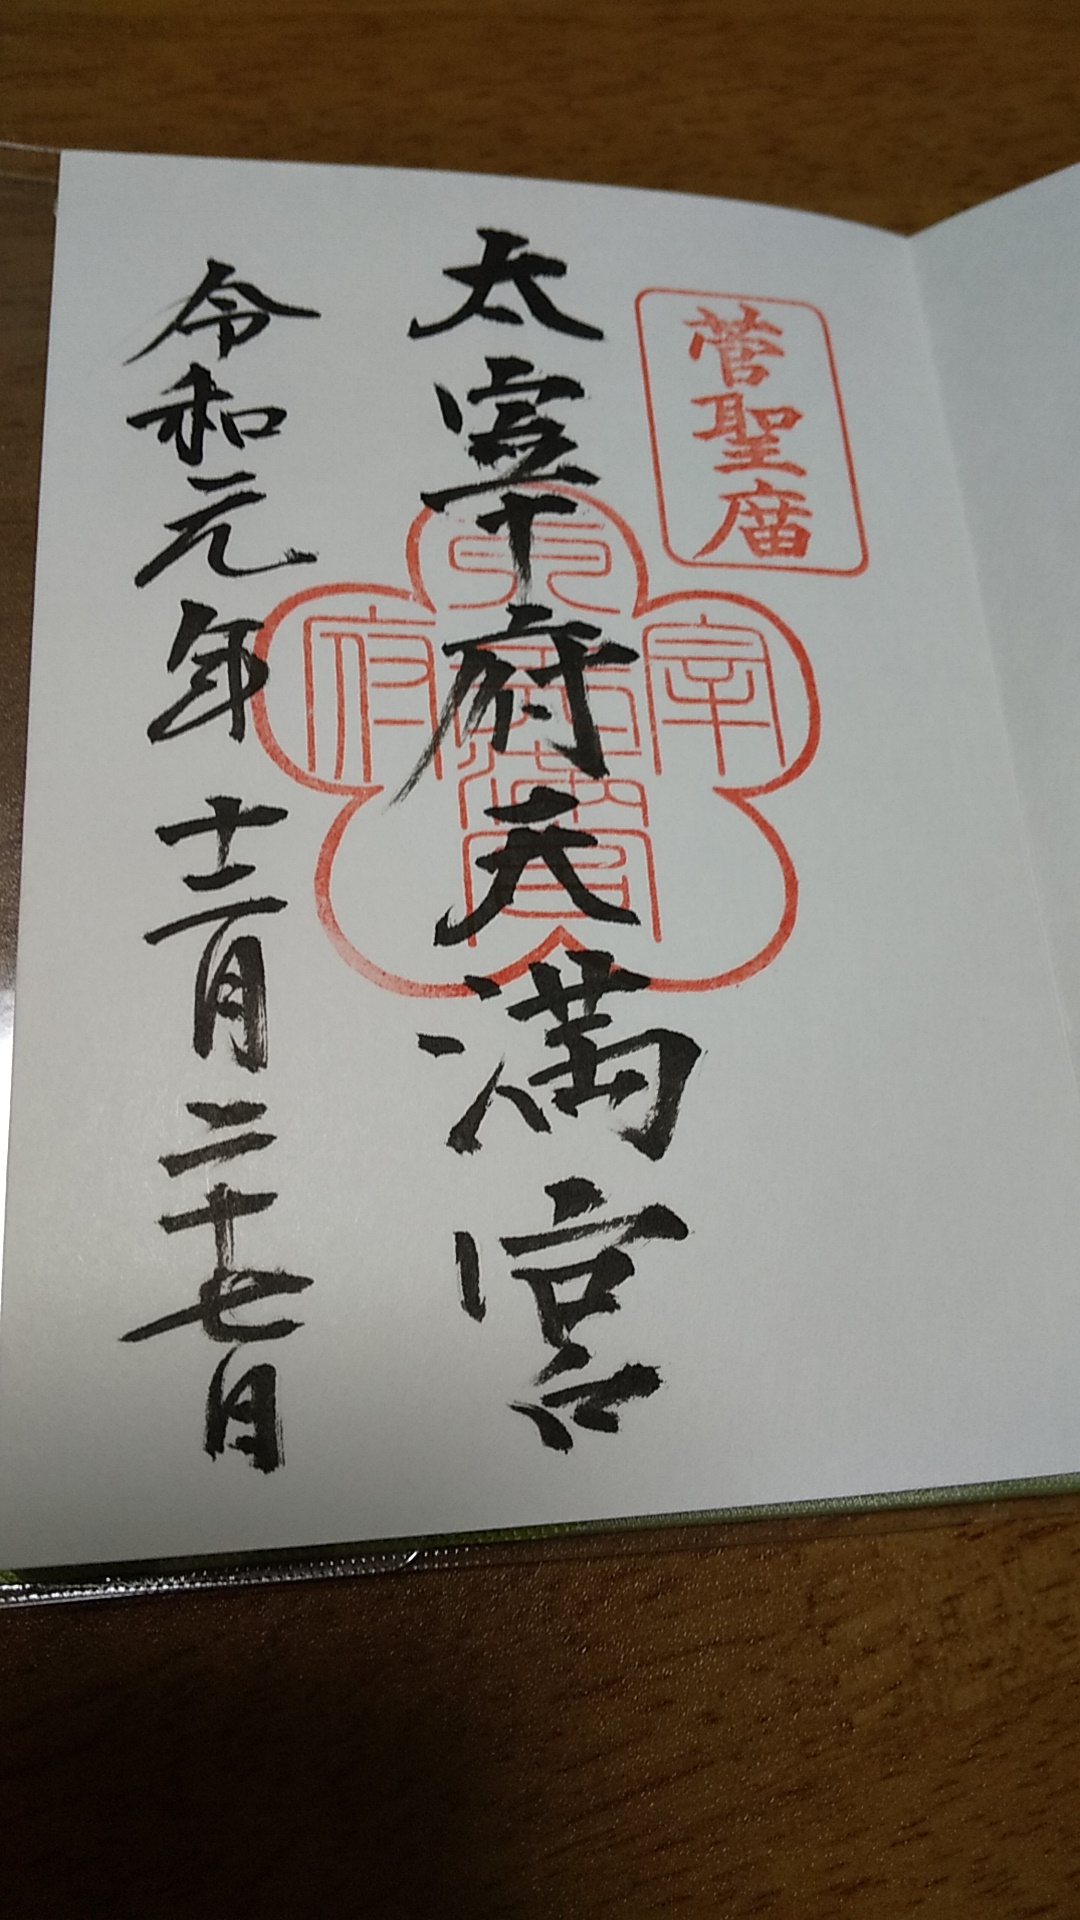 菅聖庿
太宰府天満宮
令和元年十二月二十七日